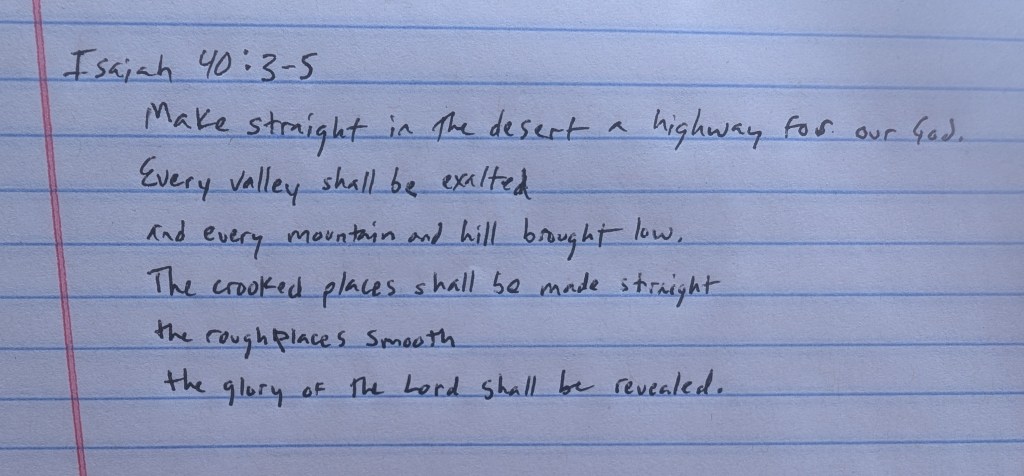 Isaiah 40:3-5
Make straight in the desert a highway for our God.
Every valley shall be exalted
and every mountain and hill brought low.
The crooked places shall be made straight
the rough places smooth
the glory of the Lord shall be revealed.